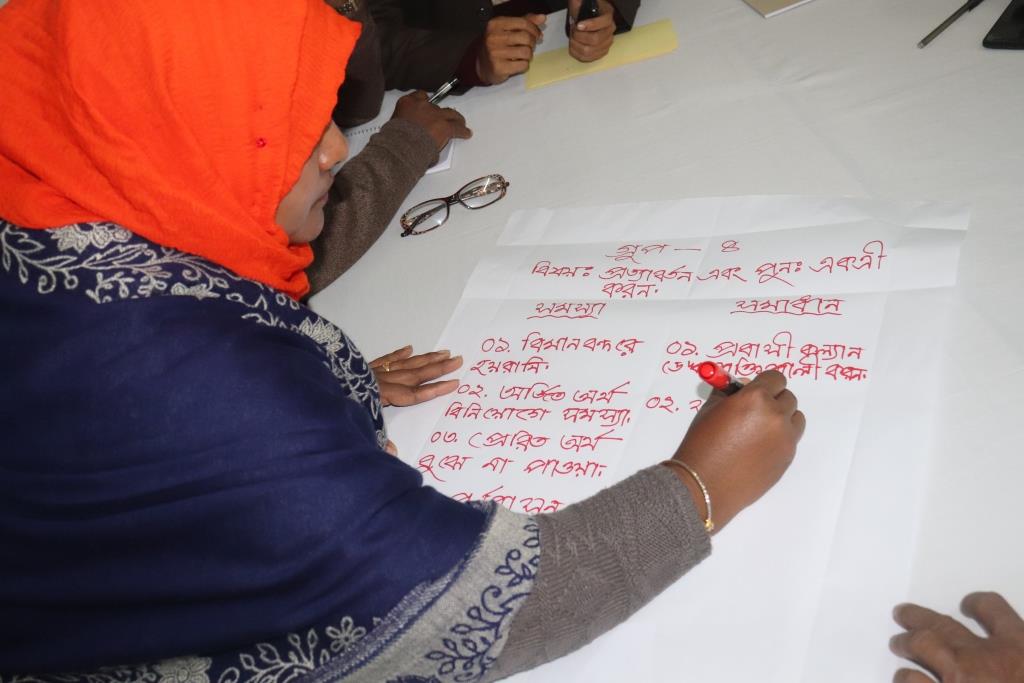 গ্রুপ - ৪
বিষয়ঃ প্রত্যাবর্তন এবং পুনঃ একত্রী
করন.
সমস্যা
সমাধান
০১. বিমান বন্দরে
হয়রানি.
০২. অর্জিত অর্থ
বিনিয়োগে সমস্যা.
০৩. প্রেরিত অর্থ
বুঝে না পাওয়া.
০১. প্রবাসী কল্যান
০২.